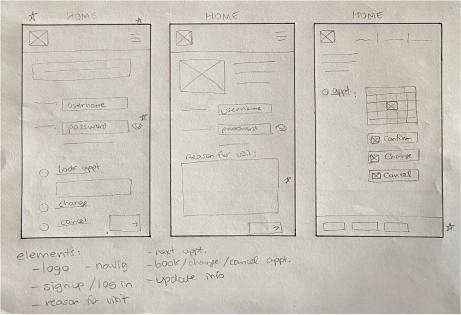 HOME
username
password
book appt.
change
cancel
HOME
username
password
Reason for visit:
HOME
appt:
Confirm
Change
Cancel
elements:
- logo - navig
- sign up / log in
- reason for visit
- next appt.
- book/change/cancel appt.
- update info